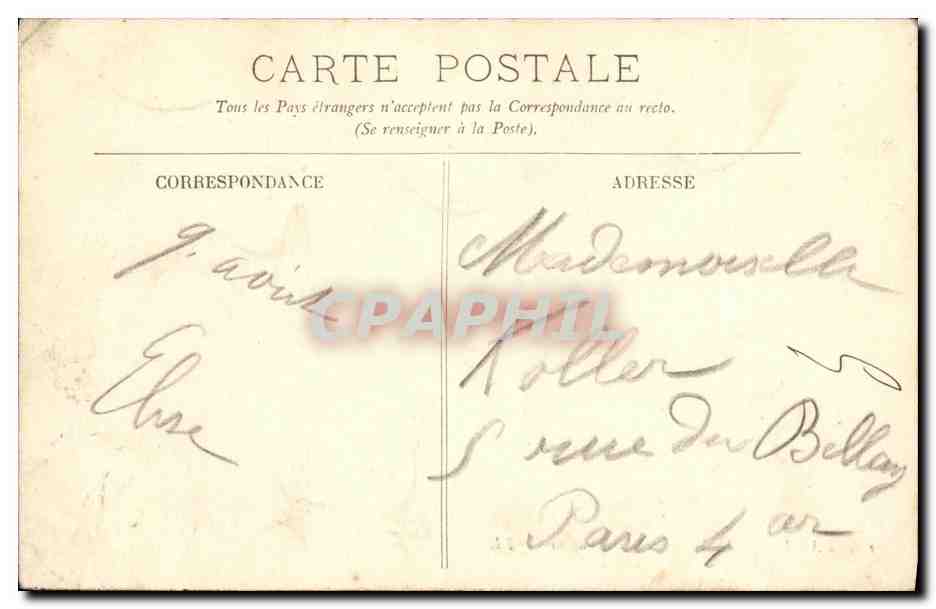 CARTE POSTALE
Tous les Pays étrangers n'acceptent pas la Correspondance au recto.
(Se renseigner à la Poste).
CORRESPONDANCE
9. août
Elise
ADRESSE
Mademoiselle
Koller
5
5 rue du Billay
Paris 4 ar
CPAPHIL